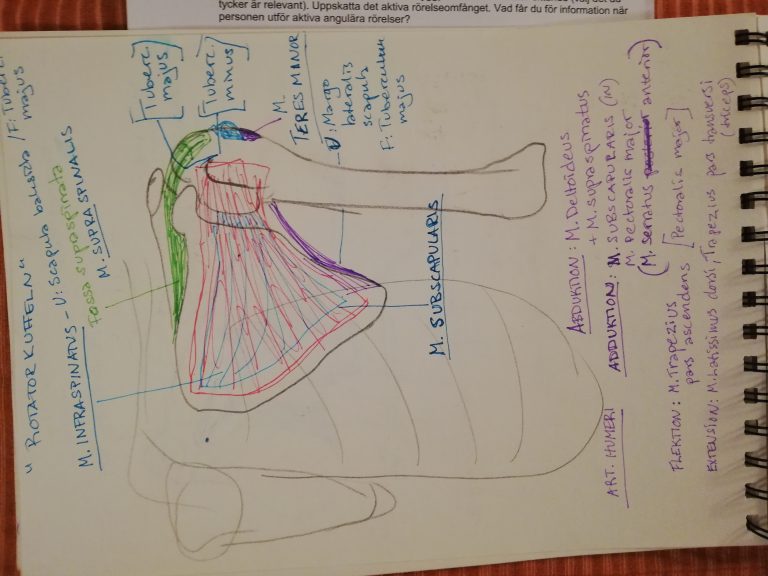 tycker är relevant). Uppskatta det aktiva rörelseomfånget. Vad får du för information när
personen utför aktiva angulära rörelser?
" ROTATOR KUFFELN "
M. INFRASPINATUS - U: Scapula baksida / F: Tuberc. majus
Fossa supraspinata
M. SUPRASPINALIS
[Tuberc. majus]
[Tuberc. minus]
M. TERES MINOR
- U: Margo
lateralis
scapula
F: Tuberculum
majus
M. SUBSCAPULARIS
ART. HUMERI
ABDUKTION: M. Deltoideus
+ M. supraspinatus
ADDUKTION: M. SUBSCAPULARIS (IN)
M. Pectoralis major
(M. serratus posterior anterior)
FLEKTION: M. Trapezius
pars ascendens [Pectoralis major]
EXTENSION: M. Latissimus dorsi, Trapezius pars transversi
(triceps)